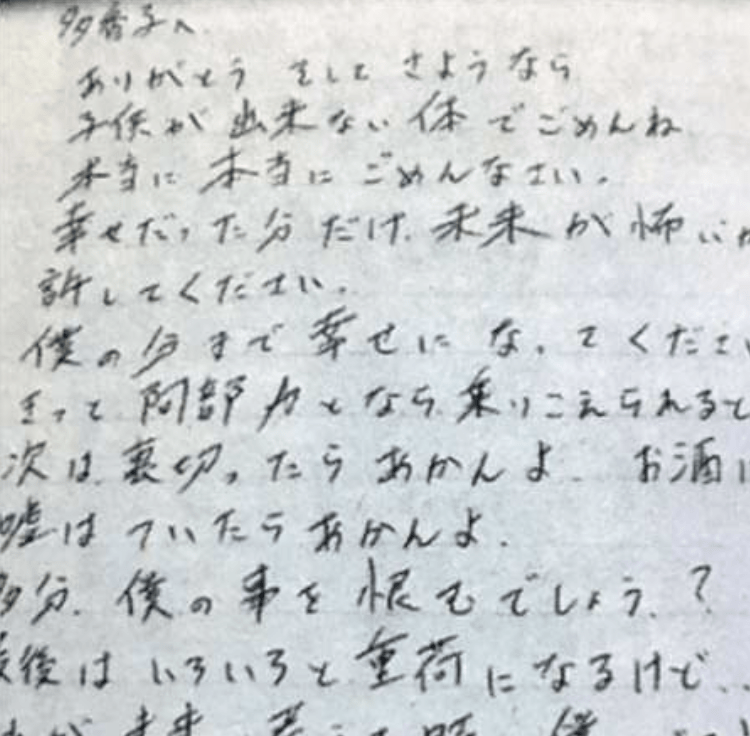 多香子へ
ありがとう そして さようなら
子供が 出来ない 体で ごめんね
本当に 本当に ごめんなさい.
幸せだった分だけ. 未来が 怖いか
許してください.
僕の分まで 幸せに なってくださ
きっと 阿部力となら 乗りこえられると
次は. 裏切ったら あかんよ. お酒
嘘は ついたら あかんよ.
多分. 僕の事を 恨むでしょう.?
最後は いろいろと 重荷になるけど..